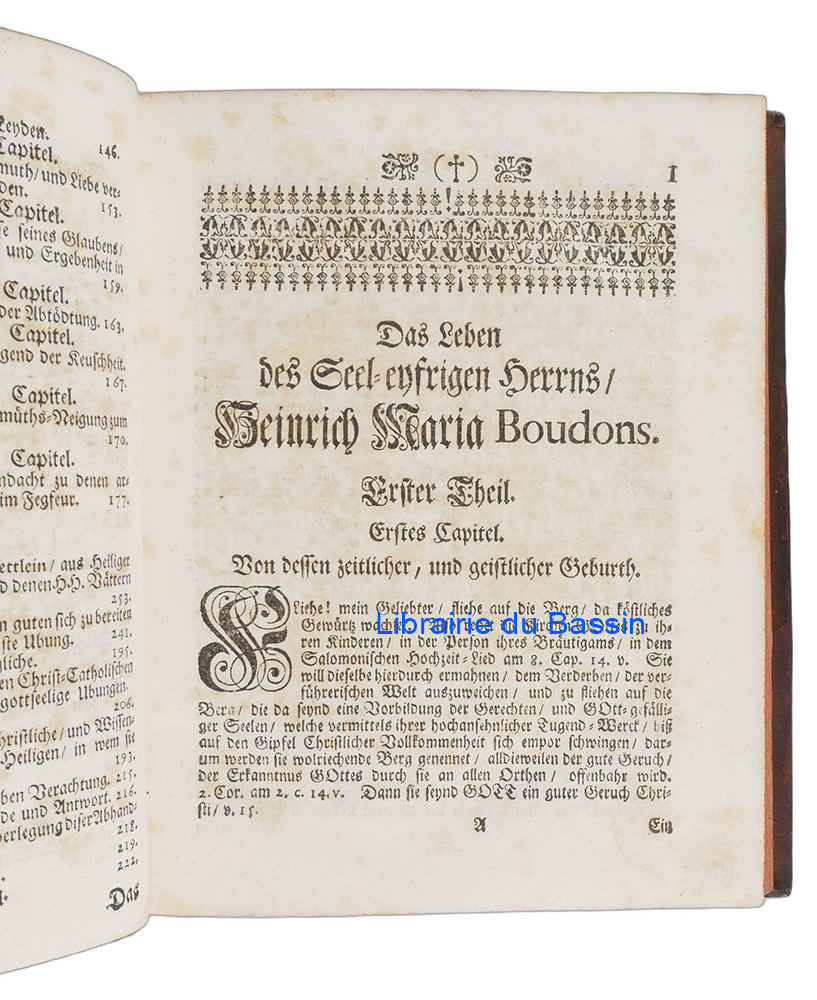 Leyden.
Capitel. 146.
muth/ und Liebe ver-
den. 153.
Capitel.
se seines Glaubens/
und Ergebenheit in
159.
Capitel.
der Abtödtung. 163.
Capitel.
gend der Keuschheit.
167.
Capitel.
müths-Neigung zum
170.
Capitel.
ndacht zu denen ar-
im Fegfeur. 177.
ettlein/ aus Heiliger
d denen H.H. Vättern
253.
n guten sich zu bereiten
ste Ubung. 241.
gliche. 195.
en Christ-Catholischen
gottseelige Ubungen.
206.
hristliche/ und Wissen-
Heiligen/ in wem sie
193.
ben Verachtung. 215.
de und Antwort. 216.
erlegung diser Abhand-
218.
219.
222.
Das
(†) 1
Das Leben
des Seel-eyfrigen Herrns/
Heinrich Maria Boudons.
Erster Theil.
Erstes Capitel.
Von dessen zeitlicher, und geistlicher Geburth.
FLiehe! mein Geliebter/ fliehe auf die Berg/ da köstliches
Gewürtz wachset. Also redet die Kirchen GOttes zu ih-
ren Kinderen/ in der Person ihres Bräutigams/ in dem
Salomonischen Hochzeit-Lied am 8. Cap. 14. v. Sie
will dieselbe hierdurch ermahnen/ dem Verderben/ der ver-
führerischen Welt auszuweichen/ und zu fliehen auf die
Berg/ die da seynd eine Vorbildung der Gerechten/ und GOtt-gefälli-
ger Seelen/ welche vermittels ihrer hochansehnlicher Tugend-Werck/ biß
auf den Gipfel Christlicher Vollkommenheit sich empor schwingen/ dar-
um werden sie wolriechende Berg genennet/ alldieweilen der gute Geruch/
der Erkanntnus GOttes durch sie an allen Orthen/ offenbahr wird.
2. Cor. am 2. c. 14. v. Dann sie seynd GOTT ein guter Geruch Chri-
sti/ v. 15.
A Ein
Librairie du Bassin